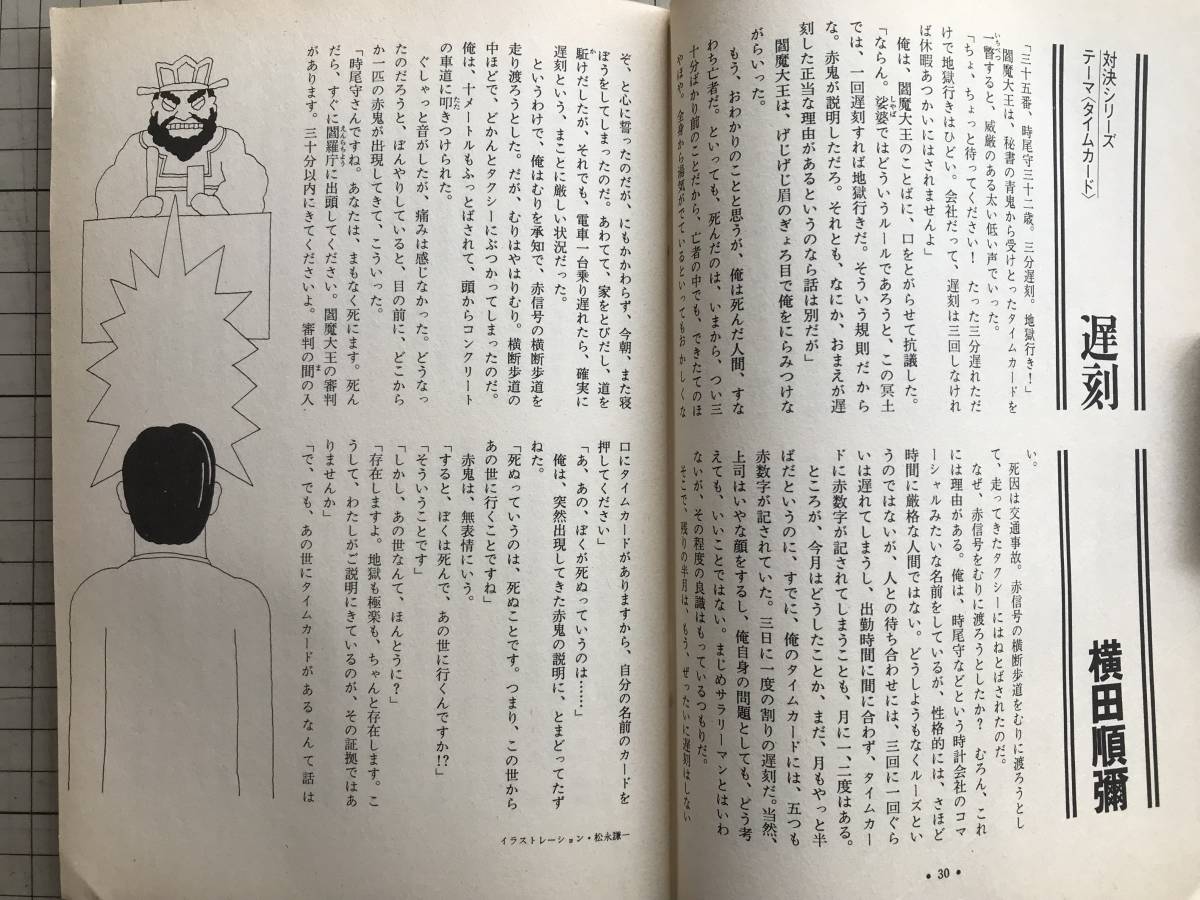 対決シリーズ
テーマ〈タイムカード〉
遅刻
横田順彌
「三十五番、時尾守三十二歳。三分遅刻。地獄行き！」
閻魔大王は、秘書の青鬼から受けとったタイムカードを
一瞥すると、威厳のある太い低い声でいった。
「ちょ、ちょっと待ってください！　たった三分遅れただ
けで地獄行きはひどい。会社だって、遅刻は三回しなけれ
ば休暇あつかいにはされませんよ」
俺は、閻魔大王のことばに、口をとがらせて抗議した。
「ならん。娑婆ではどういうルールであろうと、この冥土
では、一回遅刻すれば地獄行きだ。そういう規則だから
な。赤鬼が説明しただろ。それとも、なにか、おまえが遅
刻した正当な理由があるというのなら話は別だが」
閻魔大王は、げじげじ眉のぎょろ目で俺をにらみつけな
がらいった。
もう、おわかりのことと思うが、俺は死んだ人間、すな
わち亡者だ。といっても、死んだのは、いまから、つい三
十分ばかり前のことだから、亡者の中でも、できたてのほ
やほや。全身から湯気がでているといってもおかしくな
い。
死因は交通事故。赤信号の横断歩道をむりに渡ろうとし
て、走ってきたタクシーにはねとばされたのだ。
なぜ、赤信号をむりに渡ろうとしたか？　むろん、これ
には理由がある。俺は、時尾守などという時計会社のコマ
ーシャルみたいな名前をしているが、性格的には、さほど
時間に厳格な人間ではない。どうしようもなくルーズとい
うのではないが、人との待ち合わせには、三回に一回ぐら
いは遅れてしまうし、出勤時間に間に合わず、タイムカー
ドに赤数字が記されてしまうことも、月に一、二度はある。
ところが、今月はどうしたことか、まだ、月もやっと半
ばだというのに、すでに、俺のタイムカードには、五つも
赤数字が記されていた。三日に一度の割りの遅刻だ。当然、
上司はいやな顔をするし、俺自身の問題としても、どう考
えても、いいことではない。まじめサラリーマンとはいわ
ないが、その程度の良識はもっているつもりだ。
そこで、残りの半月は、もう、ぜったいに遅刻はしない
・30・
ぞ、と心に誓ったのだが、にもかかわらず、今朝、また寝
ぼうをしてしまったのだ。あわてて、家をとびだし、道を
駈けだしたが、それでも、電車一台乗り遅れたら、確実に
遅刻という、まことに厳しい状況だった。
というわけで、俺はむりを承知で、赤信号の横断歩道を
走り渡ろうとした。だが、むりはやはりむり。横断歩道の
中ほどで、どかんとタクシーにぶつかってしまったのだ。
俺は、十メートルもふっとばされて、頭からコンクリート
の車道に叩きつけられた。
ぐしゃっと音がしたが、痛みは感じなかった。どうなっ
たのだろうと、ぼんやりしていると、目の前に、どこから
か一匹の赤鬼が出現してきて、こういった。
「時尾守さんですね。あなたは、まもなく死にます。死ん
だら、すぐに閻羅庁に出頭してください。閻魔大王の審判
があります。三十分以内にきてくださいよ。審判の間の入
口にタイムカードがありますから、自分の名前のカードを
押してください」
「あ、あの、ぼくが死ぬっていうのは……」
俺は、突然出現してきた赤鬼の説明に、とまどってたず
ねた。
「死ぬっていうのは、死ぬことです。つまり、この世から
あの世に行くことですね」
赤鬼は、無表情にいう。
「すると、ぼくは死んで、あの世に行くんですか!?」
「そういうことです」
「しかし、あの世なんて、ほんとうに？」
「存在しますよ。地獄も極楽も、ちゃんと存在します。こ
うして、わたしがご説明にきているのが、その証拠ではあ
りませんか」
「で、でも、あの世にタイムカードがあるなんて話は
イラストレーション・松永謙一